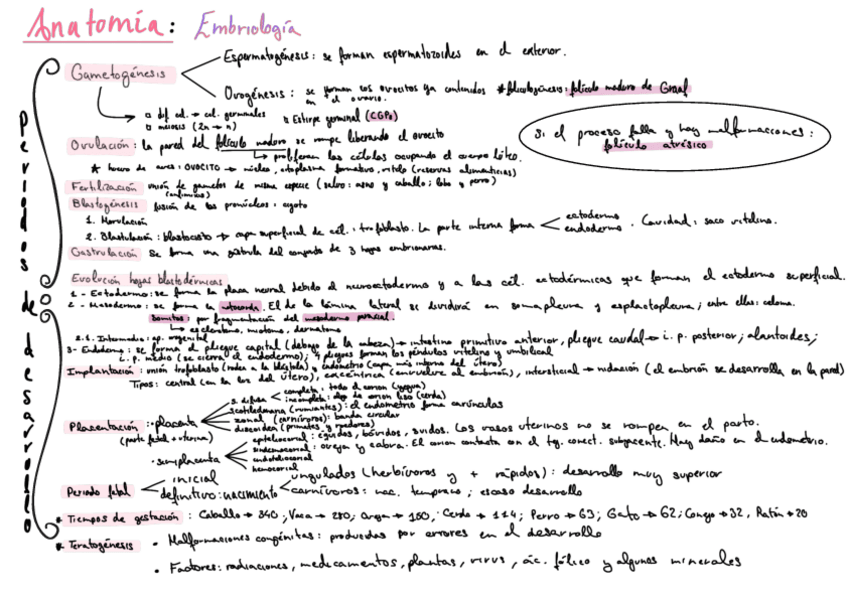 Anatomía: Embriología
Periodos de desarrollo
Gametogénesis
Espermatogénesis: se forman espermatozoides en el exterior.
Ovogénesis: se forman los ovocitos ya contenidos en el ovario. *foliculogénesis: folículo maduro de Graaf
dif cel. → cel. germinales
meiosis (2n → n)
Estirpe germinal (CGPs)
Si el proceso falla y hay malformaciones: folículo atrésico
Ovulación: la pared del folículo maduro se rompe liberando el ovocito
→ proliferan las células ocupando el cuerpo lúteo.
* huevo de aves: OVOCITO → núcleo, citoplasma formativo, vitelo (reservas alimenticias)
Fertilización unión de gametos de misma especie (salvo: asno y caballo; lobo y perro)
(anfimixis)
Blastogénesis fusión de los pronúcleos: cigoto
1. Morulación
2. Blastulación: blastocisto → capa superficial de cél.: trofoblasto. La parte interna forma ectodermo endodermo. Cavidad: saco vitelino.
Gastrulación Se forma una gástrula del conjunto de 3 hojas embrionarias.
Evolución hojas blastodérmicas
1 - Ectodermo: se forma la placa neural debido al neuroectodermo y a las cél. ectodérmicas que forman el ectodermo superficial.
2 - Mesodermo: se forma la notocorda. El de la lámina lateral se dividirá en somapleura y esplacnopleura; entre ellas: celoma.
Somitos: por fragmentación del mesodermo paraxial.
→ esclerotomo, miotomo, dermatomo
2.1. Intermedio: ap. urogenital
3- Endodermo: se forma el pliegue capital (debajo de la cabeza) → intestino primitivo anterior, pliegue caudal → i. p. posterior; alantoides;
i. p. medio (se cierra el endodermo); 4 pliegues forman los pédículos vitelino y umbilical
Implantación: unión trofoblasto (rodea a la blástula) y endometrio (capa más interna del útero)
Tipos: central (en la luz del útero), excéntrica (envuelve al embrión), intersticial → nidación (el embrión se desarrolla en la pared)
Placentación: · placenta
(parte fetal + uterina)
difusa completa: todo el corion (yegua)
incompleta: dep. de corion liso (cerda)
cotiledonaria (rumiantes): el endometrio forma carúnculas
zonal (carnívoros): banda circular
discoidea (primates y roedores)
Los vasos uterinos no se rompen en el parto.
· semiplacenta
epiteliocorial: équidos, bóvidos, suidos.
sindesmocorial: oveja y cabra. El corion contacta con el tej. conect. subyacente. Hay daño en el endometrio.
endoteliocorial
hemocorial
Periodo fetal
inicial
definitivo: nacimiento
ungulados (herbívoros y + rápidos): desarrollo muy superior
carnívoros: nac. temprano; escaso desarrollo
* Tiempos de gestación: Caballo → 340; Vaca → 280; Oveja → 150; Cerdo → 114; Perro → 63; Gato → 62; Conejo → 32, Ratón → 20
* Teratogénesis • Malformaciones congénitas: producidas por errores en el desarrollo
• Factores: radiaciones, medicamentos, plantas, virus, ác. fólico y algunos minerales